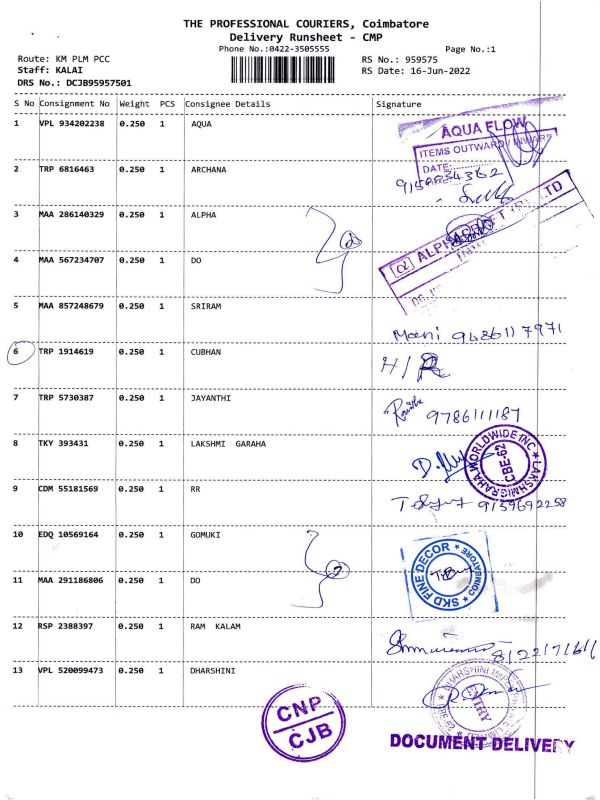 THE PROFESSIONAL COURIERS, Coimbatore
Delivery Runsheet - CMP
Phone No.:0422-3505555
Page No.:1
Route: KM PLM PCC
RS No.: 959575
Staff: KALAI
RS Date: 16-Jun-2022
DRS No.: DCJB95957501
S No Consignment No Weight PCS Consignee Details Signature
1 VPL 934202238 0.250 1 AQUA
AQUA FLOW
ITEMS OUTWARD / INWARD
DATE:
2 TRP 6816463 0.250 1 ARCHANA
3 MAA 286140329 0.250 1 ALPHA
4 MAA 567234707 0.250 1 DO
5 MAA 857248679 0.250 1 SRIRAM
Mani 9486117971
6 TRP 1914619 0.250 1 CUBHAN
H/R
7 TRP 5730387 0.250 1 JAYANTHI
9786111187
8 TKY 393431 0.250 1 LAKSHMI GARAHA
LAKSHMIGRAHA WORLDWIDE INC
CBE-62
9 CDM 55181569 0.250 1 RR
9159692258
10 EDQ 10569164 0.250 1 GOMUKI
SKD FINE DECOR
COIMBATORE
11 MAA 291186806 0.250 1 DO
12 RSP 2388397 0.250 1 RAM KALAM
13 VPL 520099473 0.250 1 DHARSHINI
DHARSHINI
ENTRY
CBE-62
CNP
CJB
DOCUMENT DELIVERY